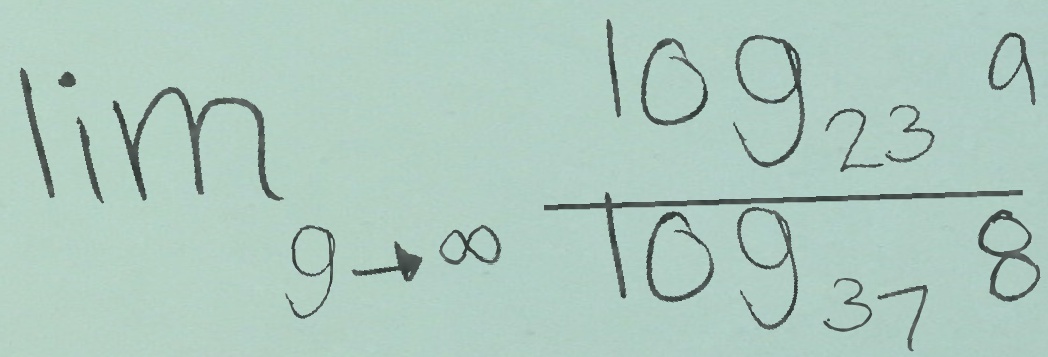 \lim_{g \to \infty} \frac{\log_{23} 9}{\log_{37} 8}